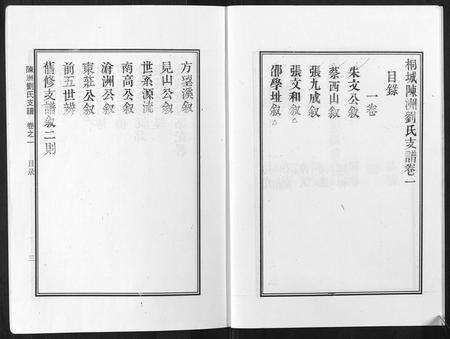 桐城陳洲劉氏支譜卷一
目錄
一卷
朱文公敘
蔡西山敘
張九成敘
張文和敘△
鄒學址敘△
方望溪敘
見山公敘
世系源流
南高公敘
瀹洲公敘
東莊公敘
前五世辨
舊修支譜敘二則
陳洲劉氏支譜 卷之一 目录 三